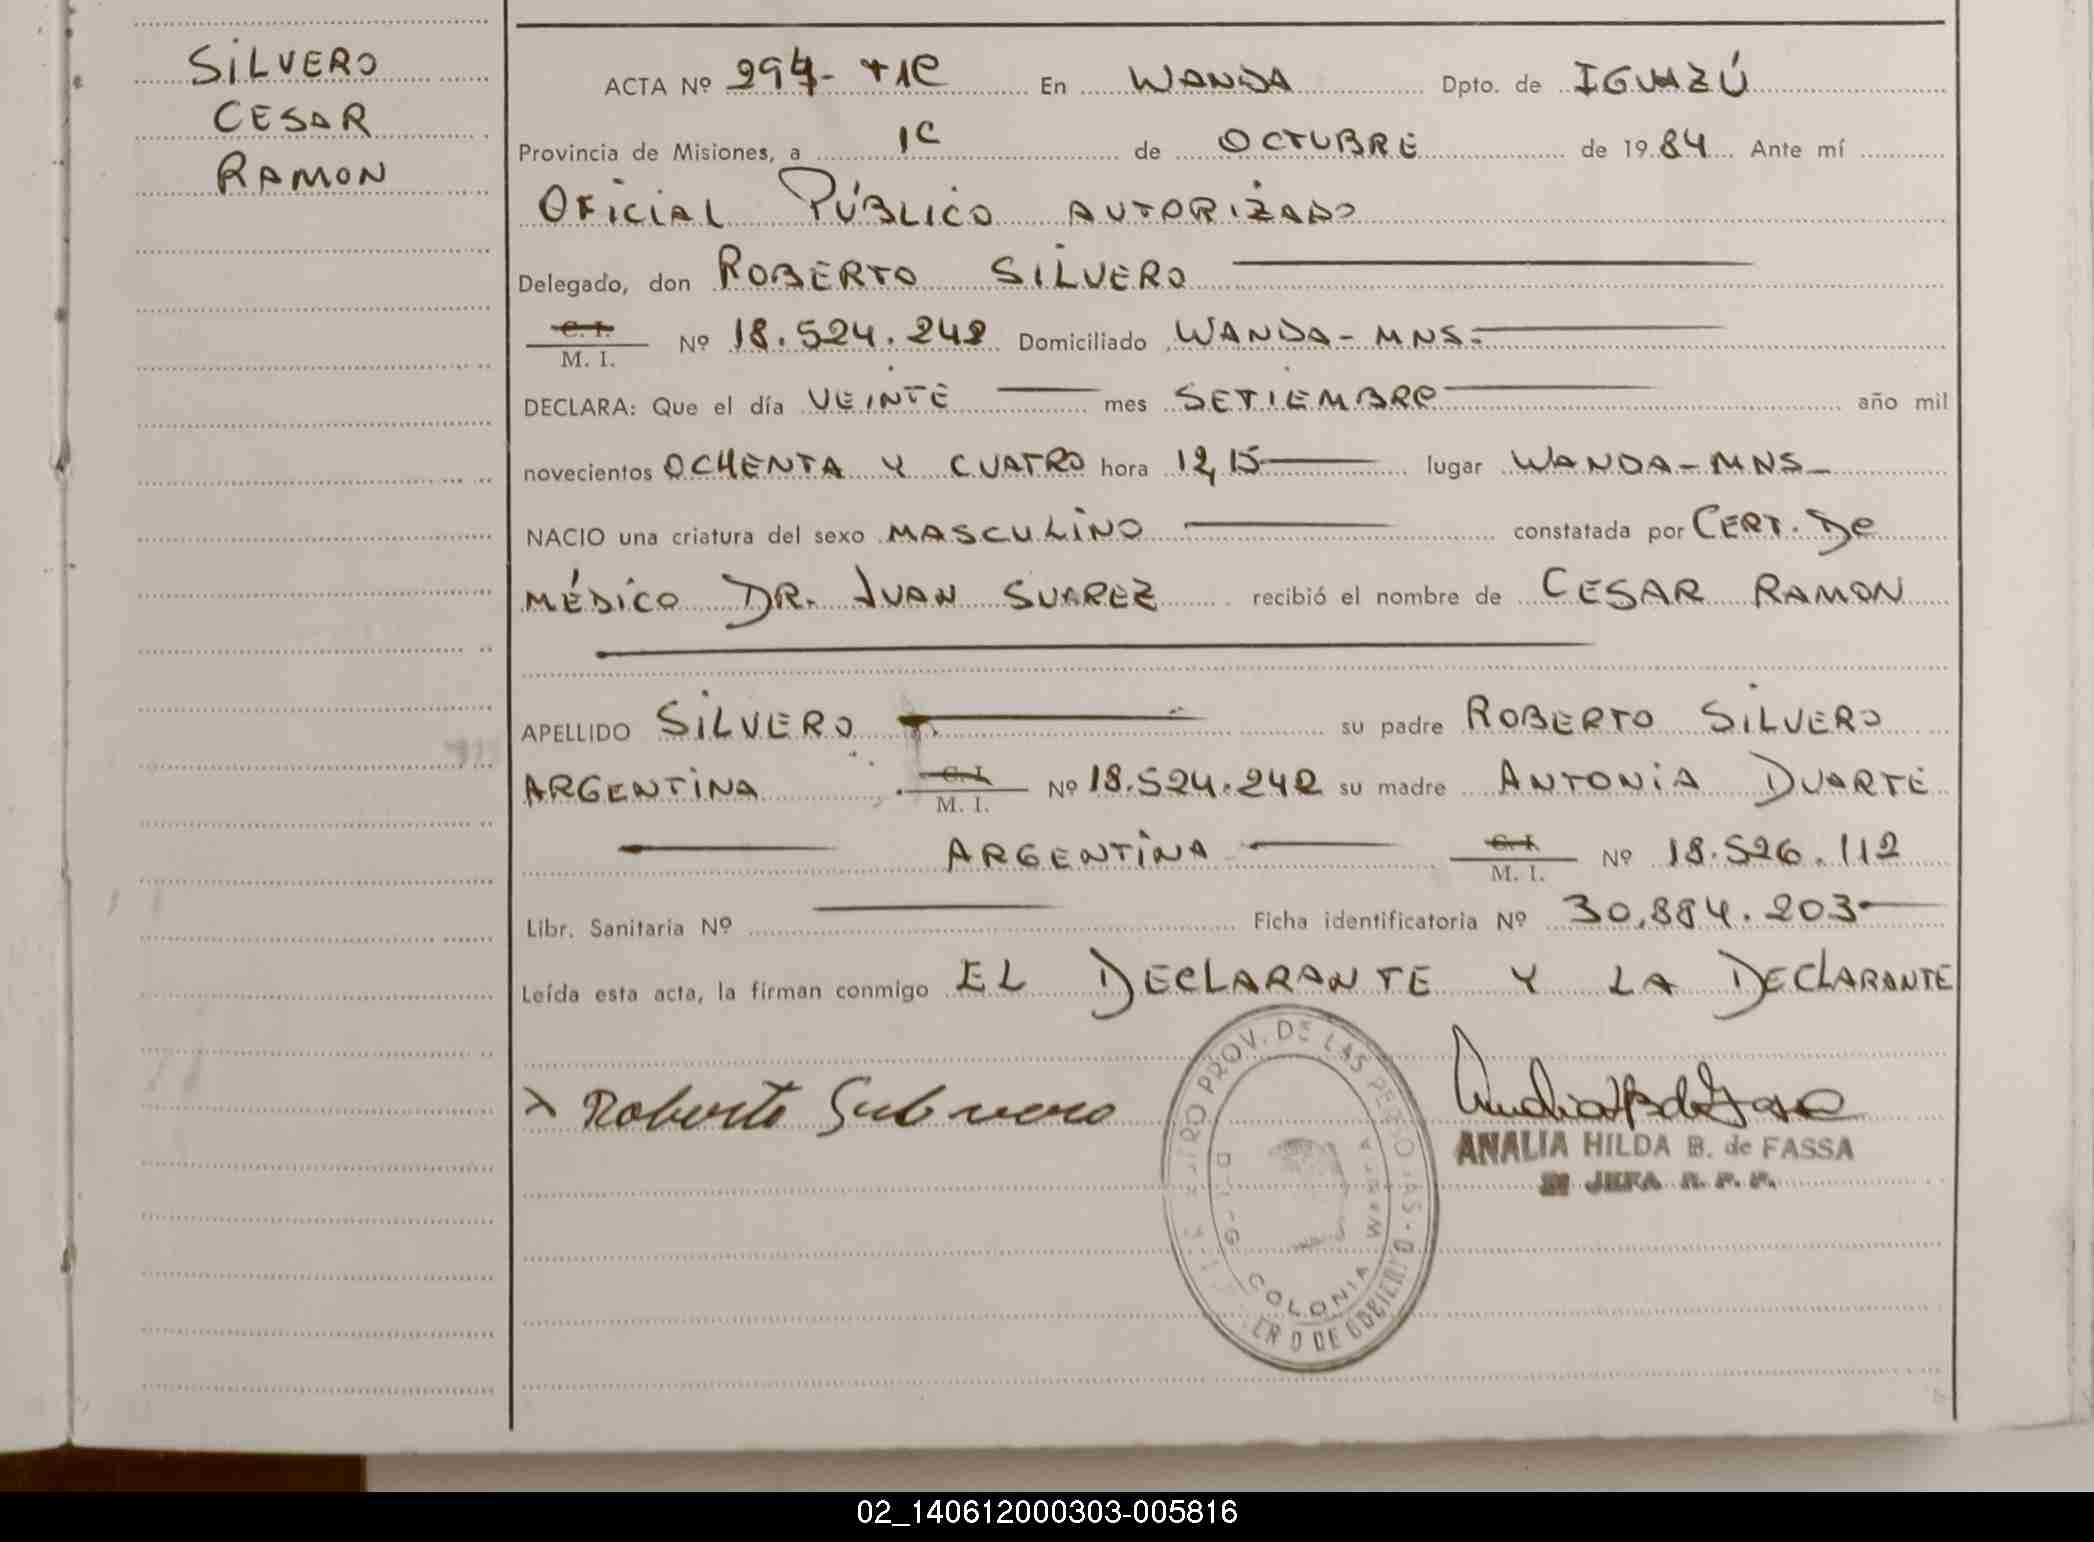 SILVERO
CESAR
RAMON
ACTA Nº 294- T1C En WANDA Dpto. de IGUAZÚ
Provincia de Misiones, a 1C de OCTUBRE de 1984 Ante mí
OFICIAL PÚBLICO AUTORIZADO
Delegado, don ROBERTO SILVERO
C. I.
M. I. Nº 18.524.242 Domiciliado WANDA - MNS.
DECLARA: Que el día VEINTE mes SETIEMBRE año mil
novecientos OCHENTA Y CUATRO hora 12,15 lugar WANDA - MNS -
NACIO una criatura del sexo MASCULINO constatada por CERT. De
MÉDICO DR. JUAN SUAREZ recibió el nombre de CESAR RAMON
APELLIDO SILVERO su padre ROBERTO SILVERO
ARGENTINA C. I.
M. I. Nº 18.524.242 su madre ANTONIA DUARTE
ARGENTINA C. I.
M. I. Nº 18.526.112
Libr. Sanitaria Nº Ficha identificatoria Nº 30.884.203
Leída esta acta, la firman conmigo EL DECLARANTE Y LA DECLARANTE
x Roberto Silvero
PROV. DE LAS PERSONAS
COLONIA WANDA
ANALIA HILDA B. de FASSA
JEFA R. P. P.
02_140612000303-005816